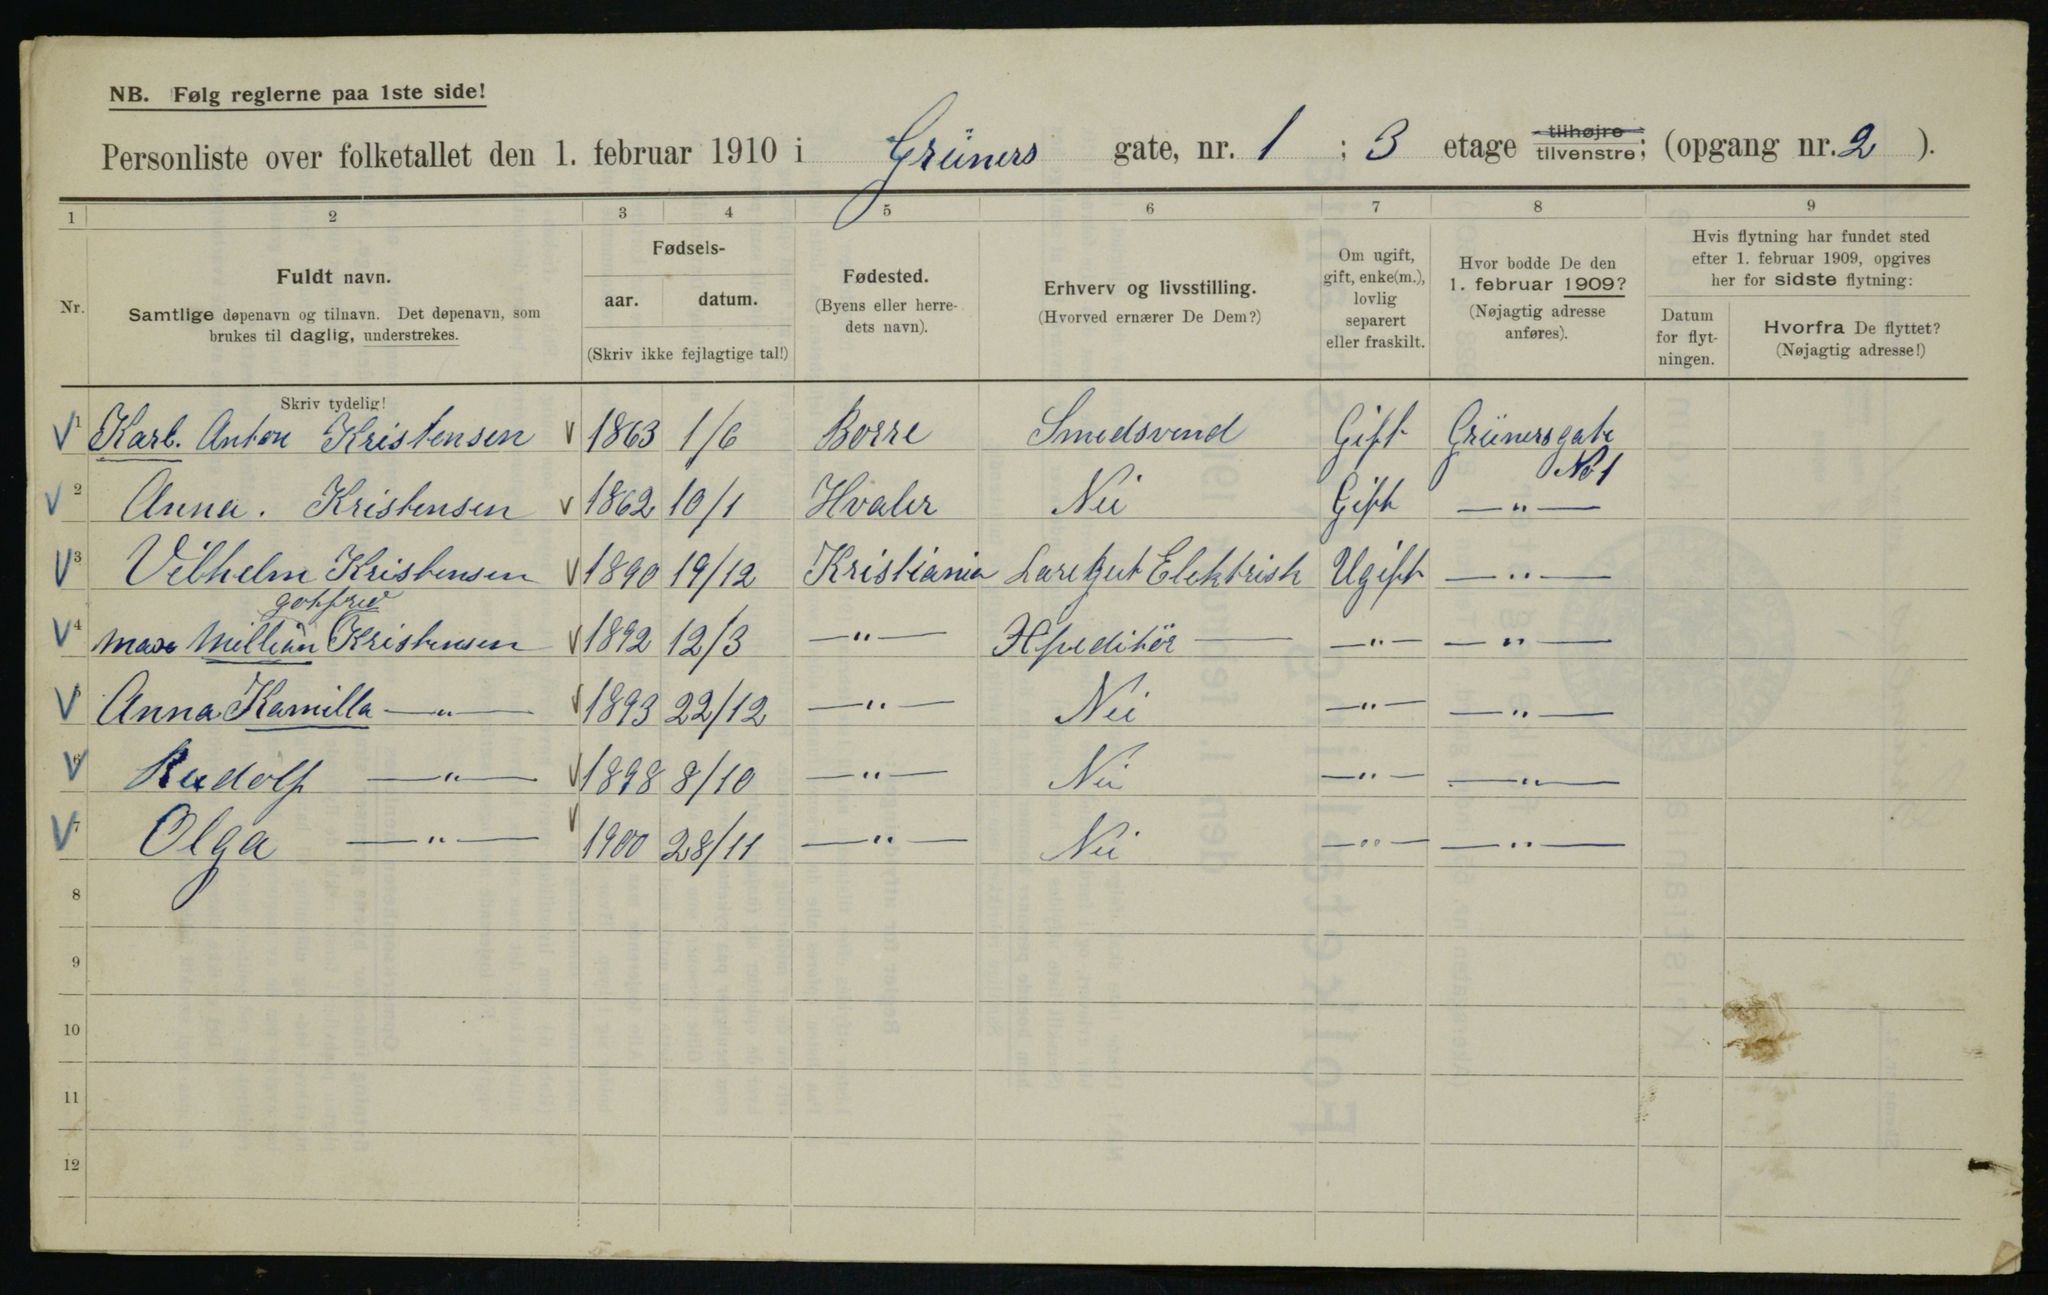 NB. Følg reglerne paa 1ste side!
Personliste over folketallet den 1. februar 1910 i Grüners gate, nr. 1 ; 3 etage tilhøjre tilvenstre; (opgang nr. 2 ).
1 2 3 4 5 6 7 8 9
Nr.
Fuldt navn.
Samtlige døpenavn og tilnavn. Det døpenavn, som
brukes til daglig, understrekes.
Fødsels-
aar. datum.
(Skriv ikke fejlagtige tal!)
Fødested.
(Byens eller herre-
dets navn).
Erhverv og livsstilling.
(Hvorved ernærer De Dem?)
Om ugift,
gift, enke(m.),
lovlig
separert
eller fraskilt.
Hvor bodde De den
1. februar 1909?
(Nøjagtig adresse
anføres).
Hvis flytning har fundet sted
efter 1. februar 1909, opgives
her for sidste flytning:
Datum
for flyt-
ningen.
Hvorfra De flyttet?
(Nøjagtig adresse!)
Skriv tydelig!
1 Karl. Anton Kristensen 1863 1/6 Borre Smedsvend Gift Grünersgate No 1
2 Anna. Kristensen 1862 10/1 Hvaler Nei Gift — " —
3 Vilhelm Kristensen 1890 19/12 Kristiania Laregut Elektrisk Ugift — " —
gotfred
4 Max Millian Kristensen 1892 12/3 — " — Xpeditør — — " — — " —
5 Anna Kamilla — " — 1893 22/12 — " — Nei — " — — " —
6 Rudolf — " — 1898 8/10 — " — Nei — " — — " —
7 Olga — " — 1900 28/11 — " — Nei — " — — " —
8
9
10
11
12